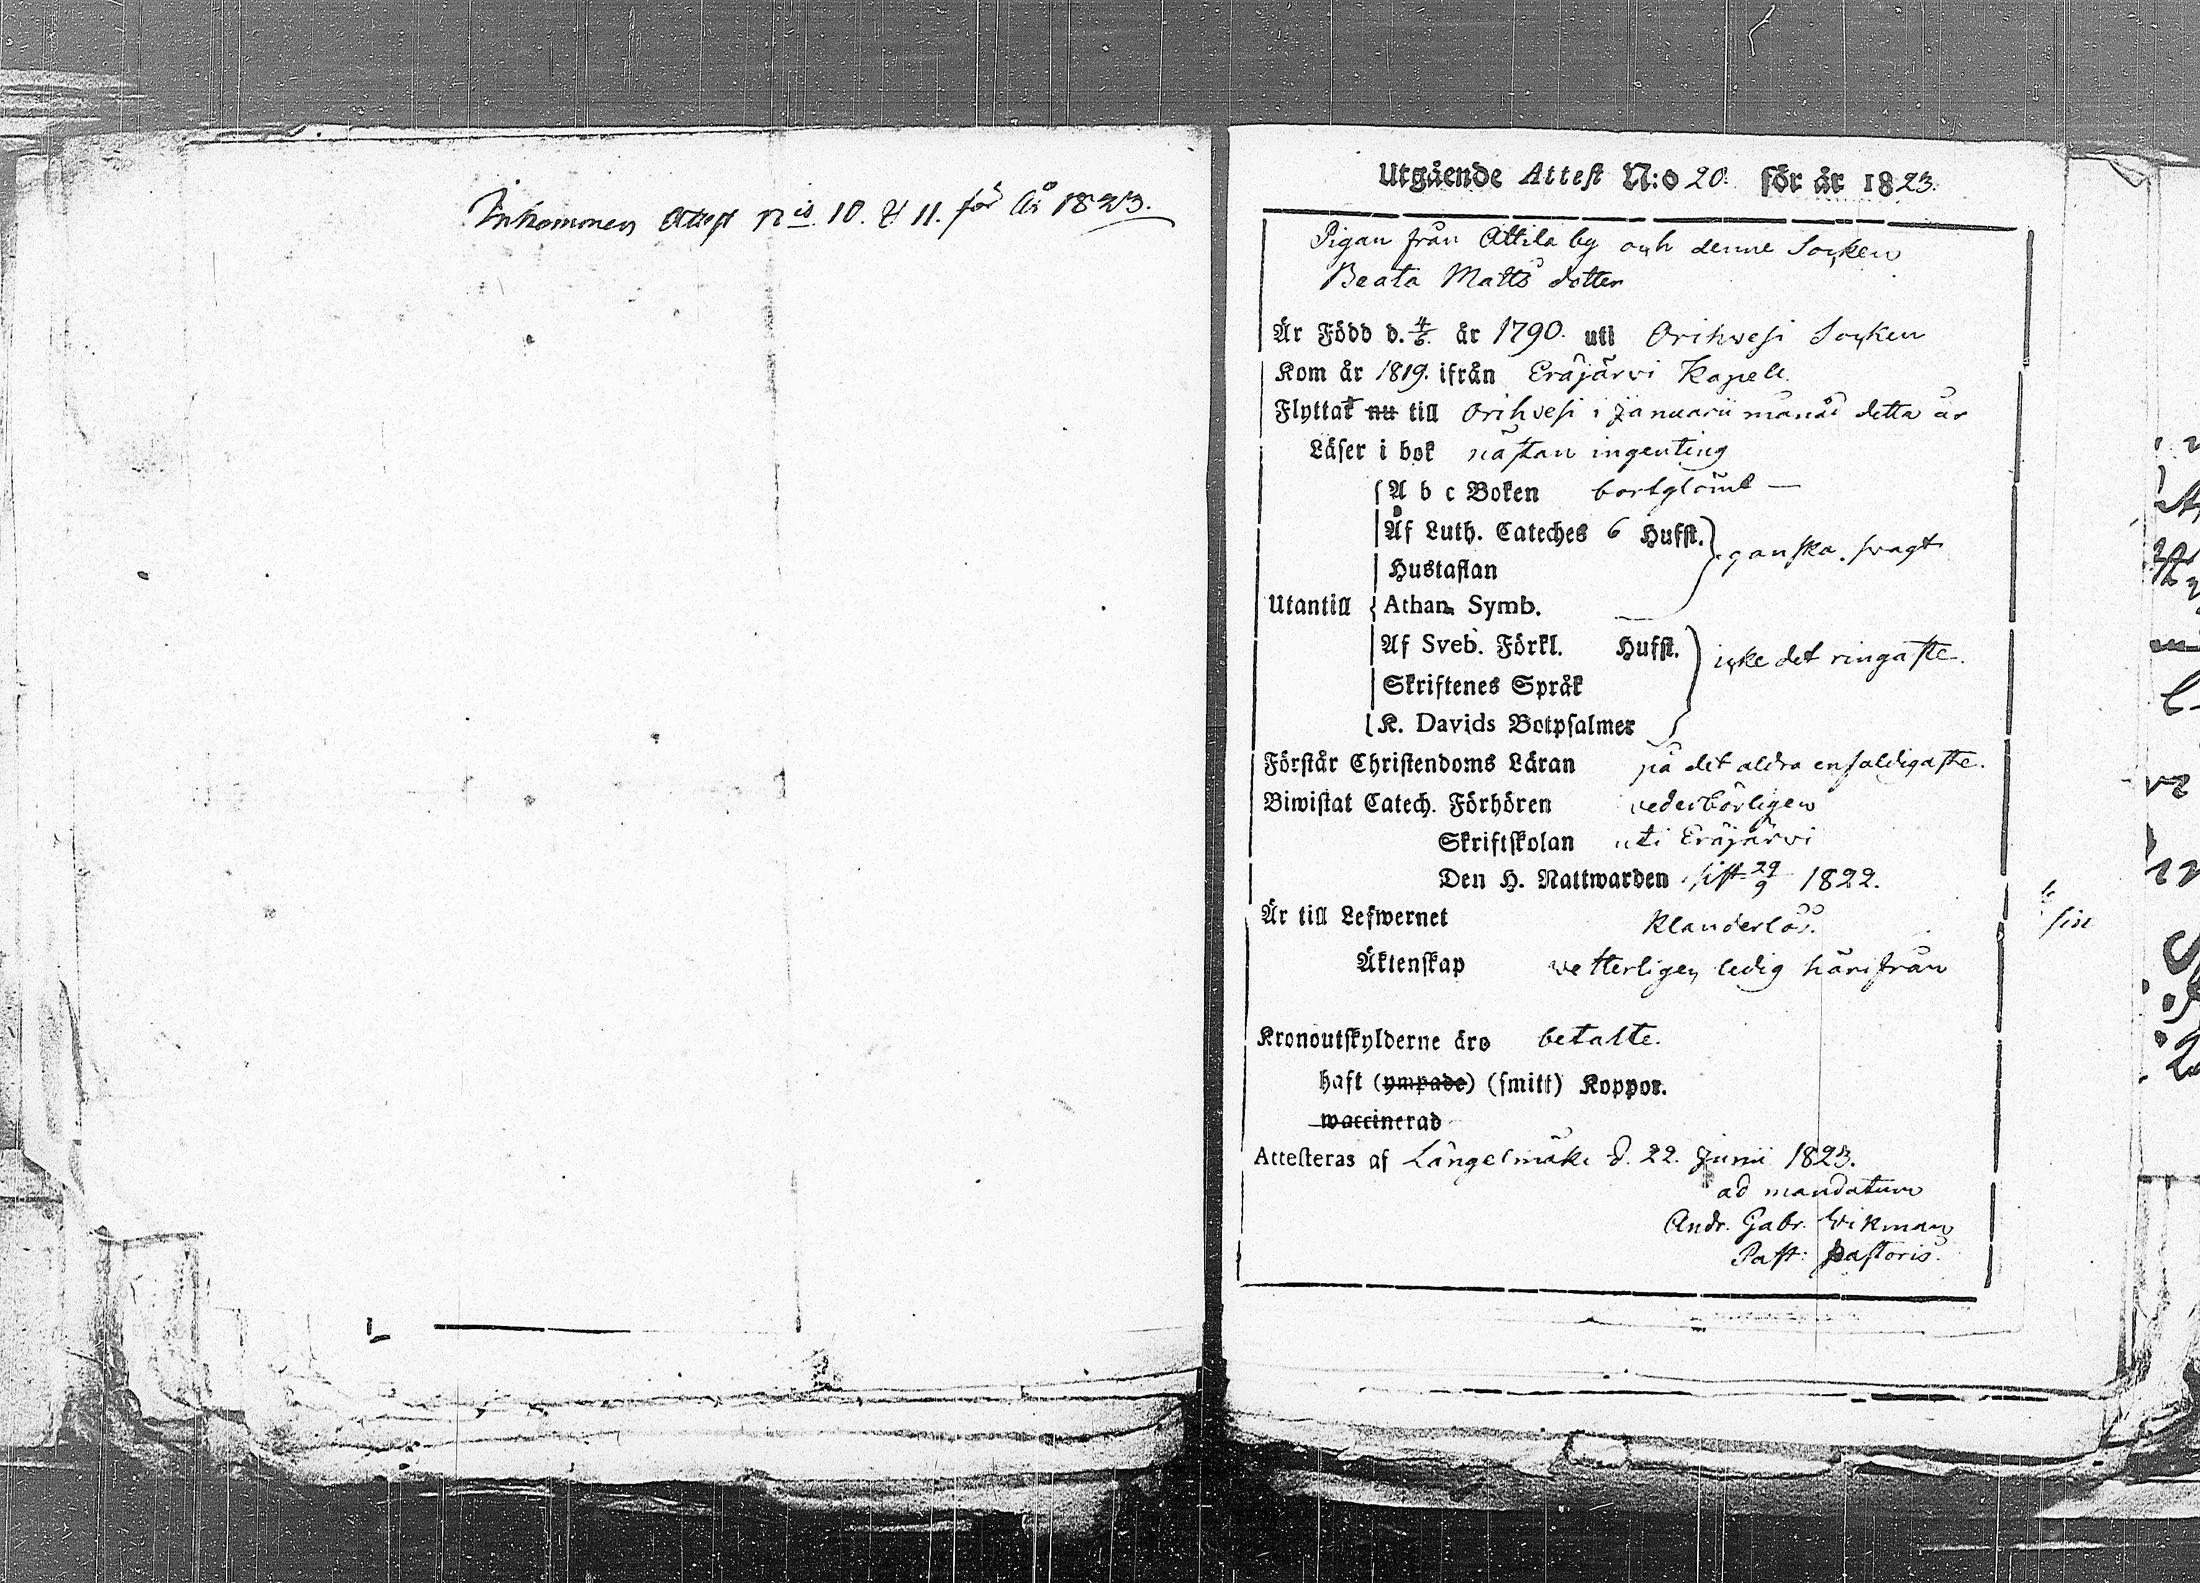 Inkommen Attest N:is 10. & 11. för År 1823.
Utgående Attest N:o 20. för år 1823.
Pigan från Attila by och denne Socken
Beata Matts dotter
Är Född d. 4/6. år 1790. uti Orihvesi Socken
Kom år 1819. ifrån Eräjärvi Kapell.
Flyttat nu till Orihvesi i Januarii månad detta år
Läser i bok nästan ingenting
A b c Boken bortglömt —
Af Luth. Cateches 6 Hufst. ganska svagt
Hustaflan
Utantill Athan. Symb.
Af Sveb. Förkl. Hufst. icke det ringaste.
Skriftenes Språk
K. Davids Botpsalmer
Förstår Christendoms Läran på det aldra enfaldigaste.
Biwistat Catech. Förhören vederbörligen
Skriftskolan uti Eräjärvi
Den H. Nattwarden sist 29/9 1822.
Är till Lefwernet Klanderlös.
Äktenskap vetterligen ledig härifrån
Kronoutskylderne äro betalte.
haft (ympade) (smitt) Koppor.
waccinerad
Attesteras af Längelmäki d. 22. Junii 1823.
ad mandatum
Andr. Gabr. Wikman
Past: pastoris.